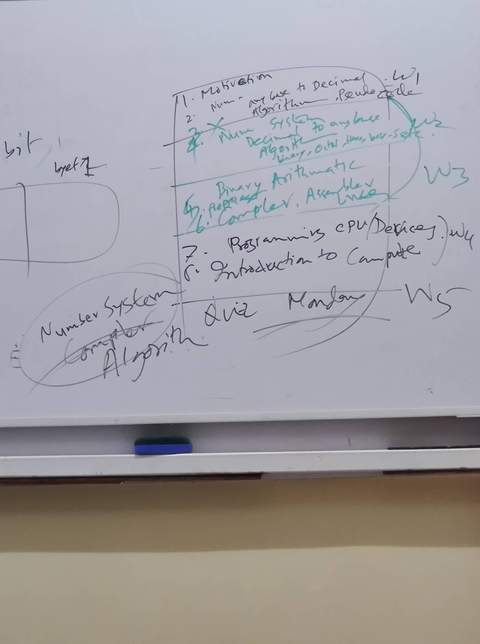 1. Motivation
2. Num - any base to Decimal W1
Algorithm Pseudocode
4. Num System W2
Decimal to any base
Algorithm
5. Binary Arithmatic W3
6. Compiler, Assembler
Linker
7. Programming CPU/Devices W4
8. Introduction to Compute
Quiz Monday W5
bit
Number System
Compiler
Algorith